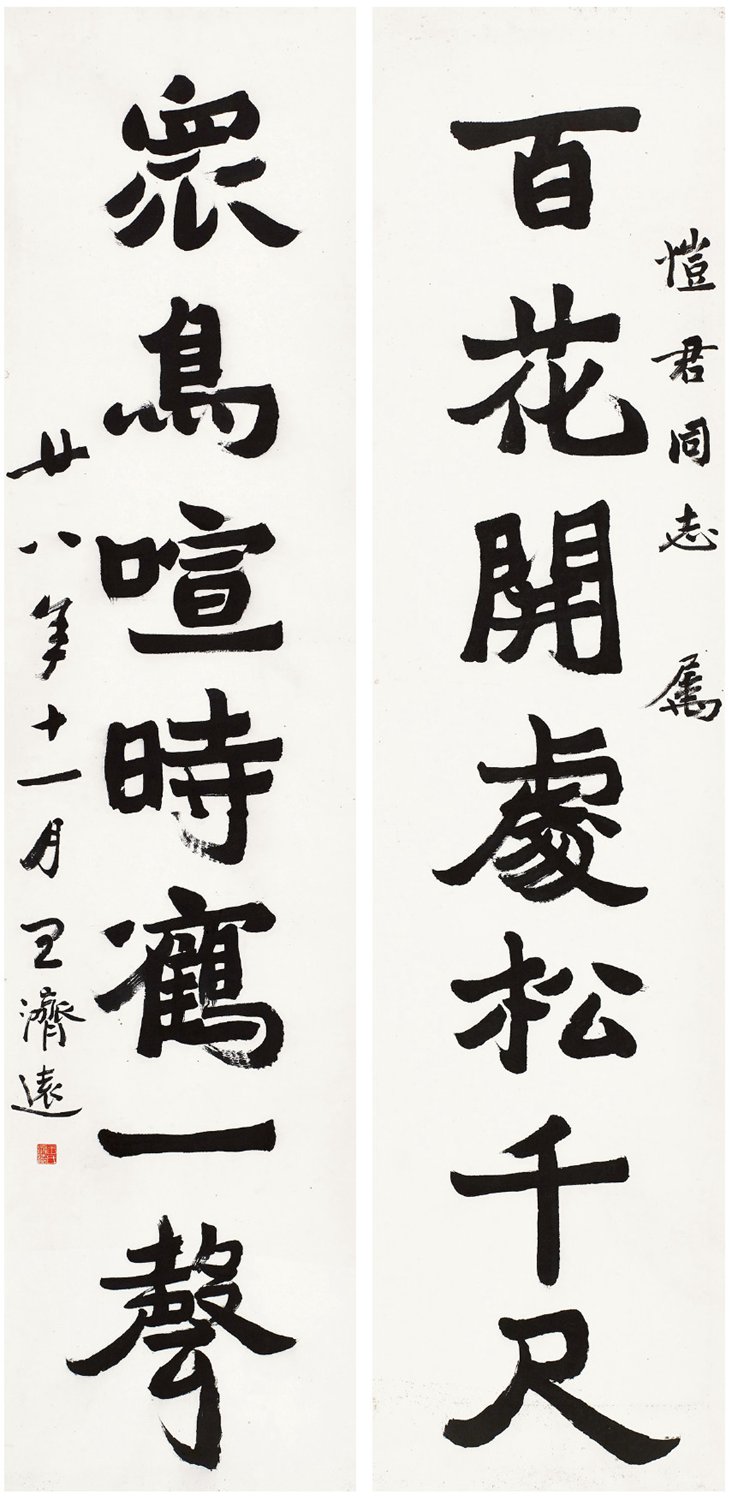 愷君同志 属
百花開處松千尺
眾鳥喧時鶴一聲
廿八年十一月王濟遠